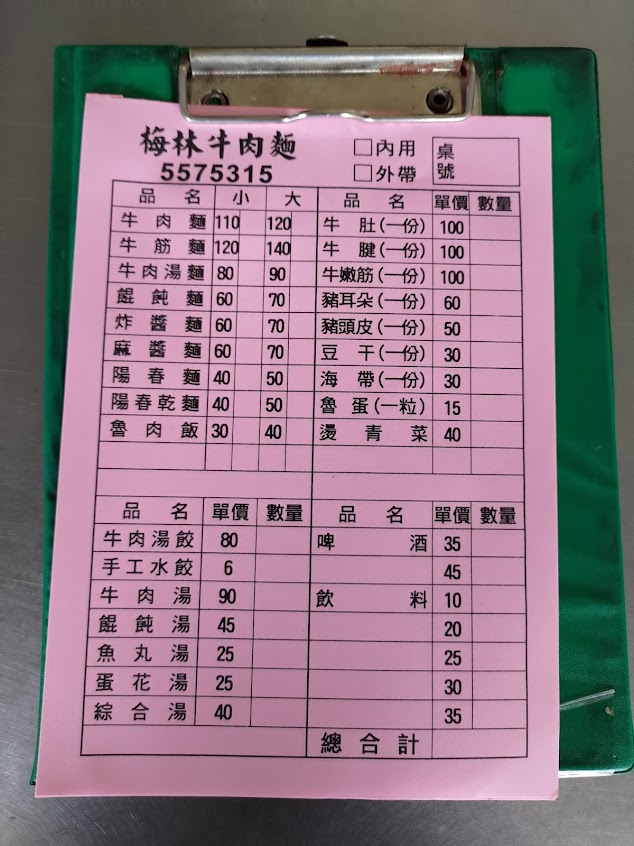 梅林牛肉麵
5575315
□內用 □外帶 桌號
品名 小 大
牛肉麵 110 120
牛筋麵 120 140
牛肉湯麵 80 90
餛飩麵 60 70
炸醬麵 60 70
麻醬麵 60 70
陽春麵 40 50
陽春乾麵 40 50
魯肉飯 30 40
品名 單價 數量
牛肚(一份) 100
牛腱(一份) 100
牛嫩筋(一份) 100
豬耳朵(一份) 60
豬頭皮(一份) 50
豆干(一份) 30
海帶(一份) 30
魯蛋(一粒) 15
燙青菜 40
品名 單價 數量
牛肉湯餃 80
手工水餃 6
牛肉湯 90
餛飩湯 45
魚丸湯 25
蛋花湯 25
綜合湯 40
品名 單價 數量
啤酒 35
45
飲料 10
20
25
30
35
總合計